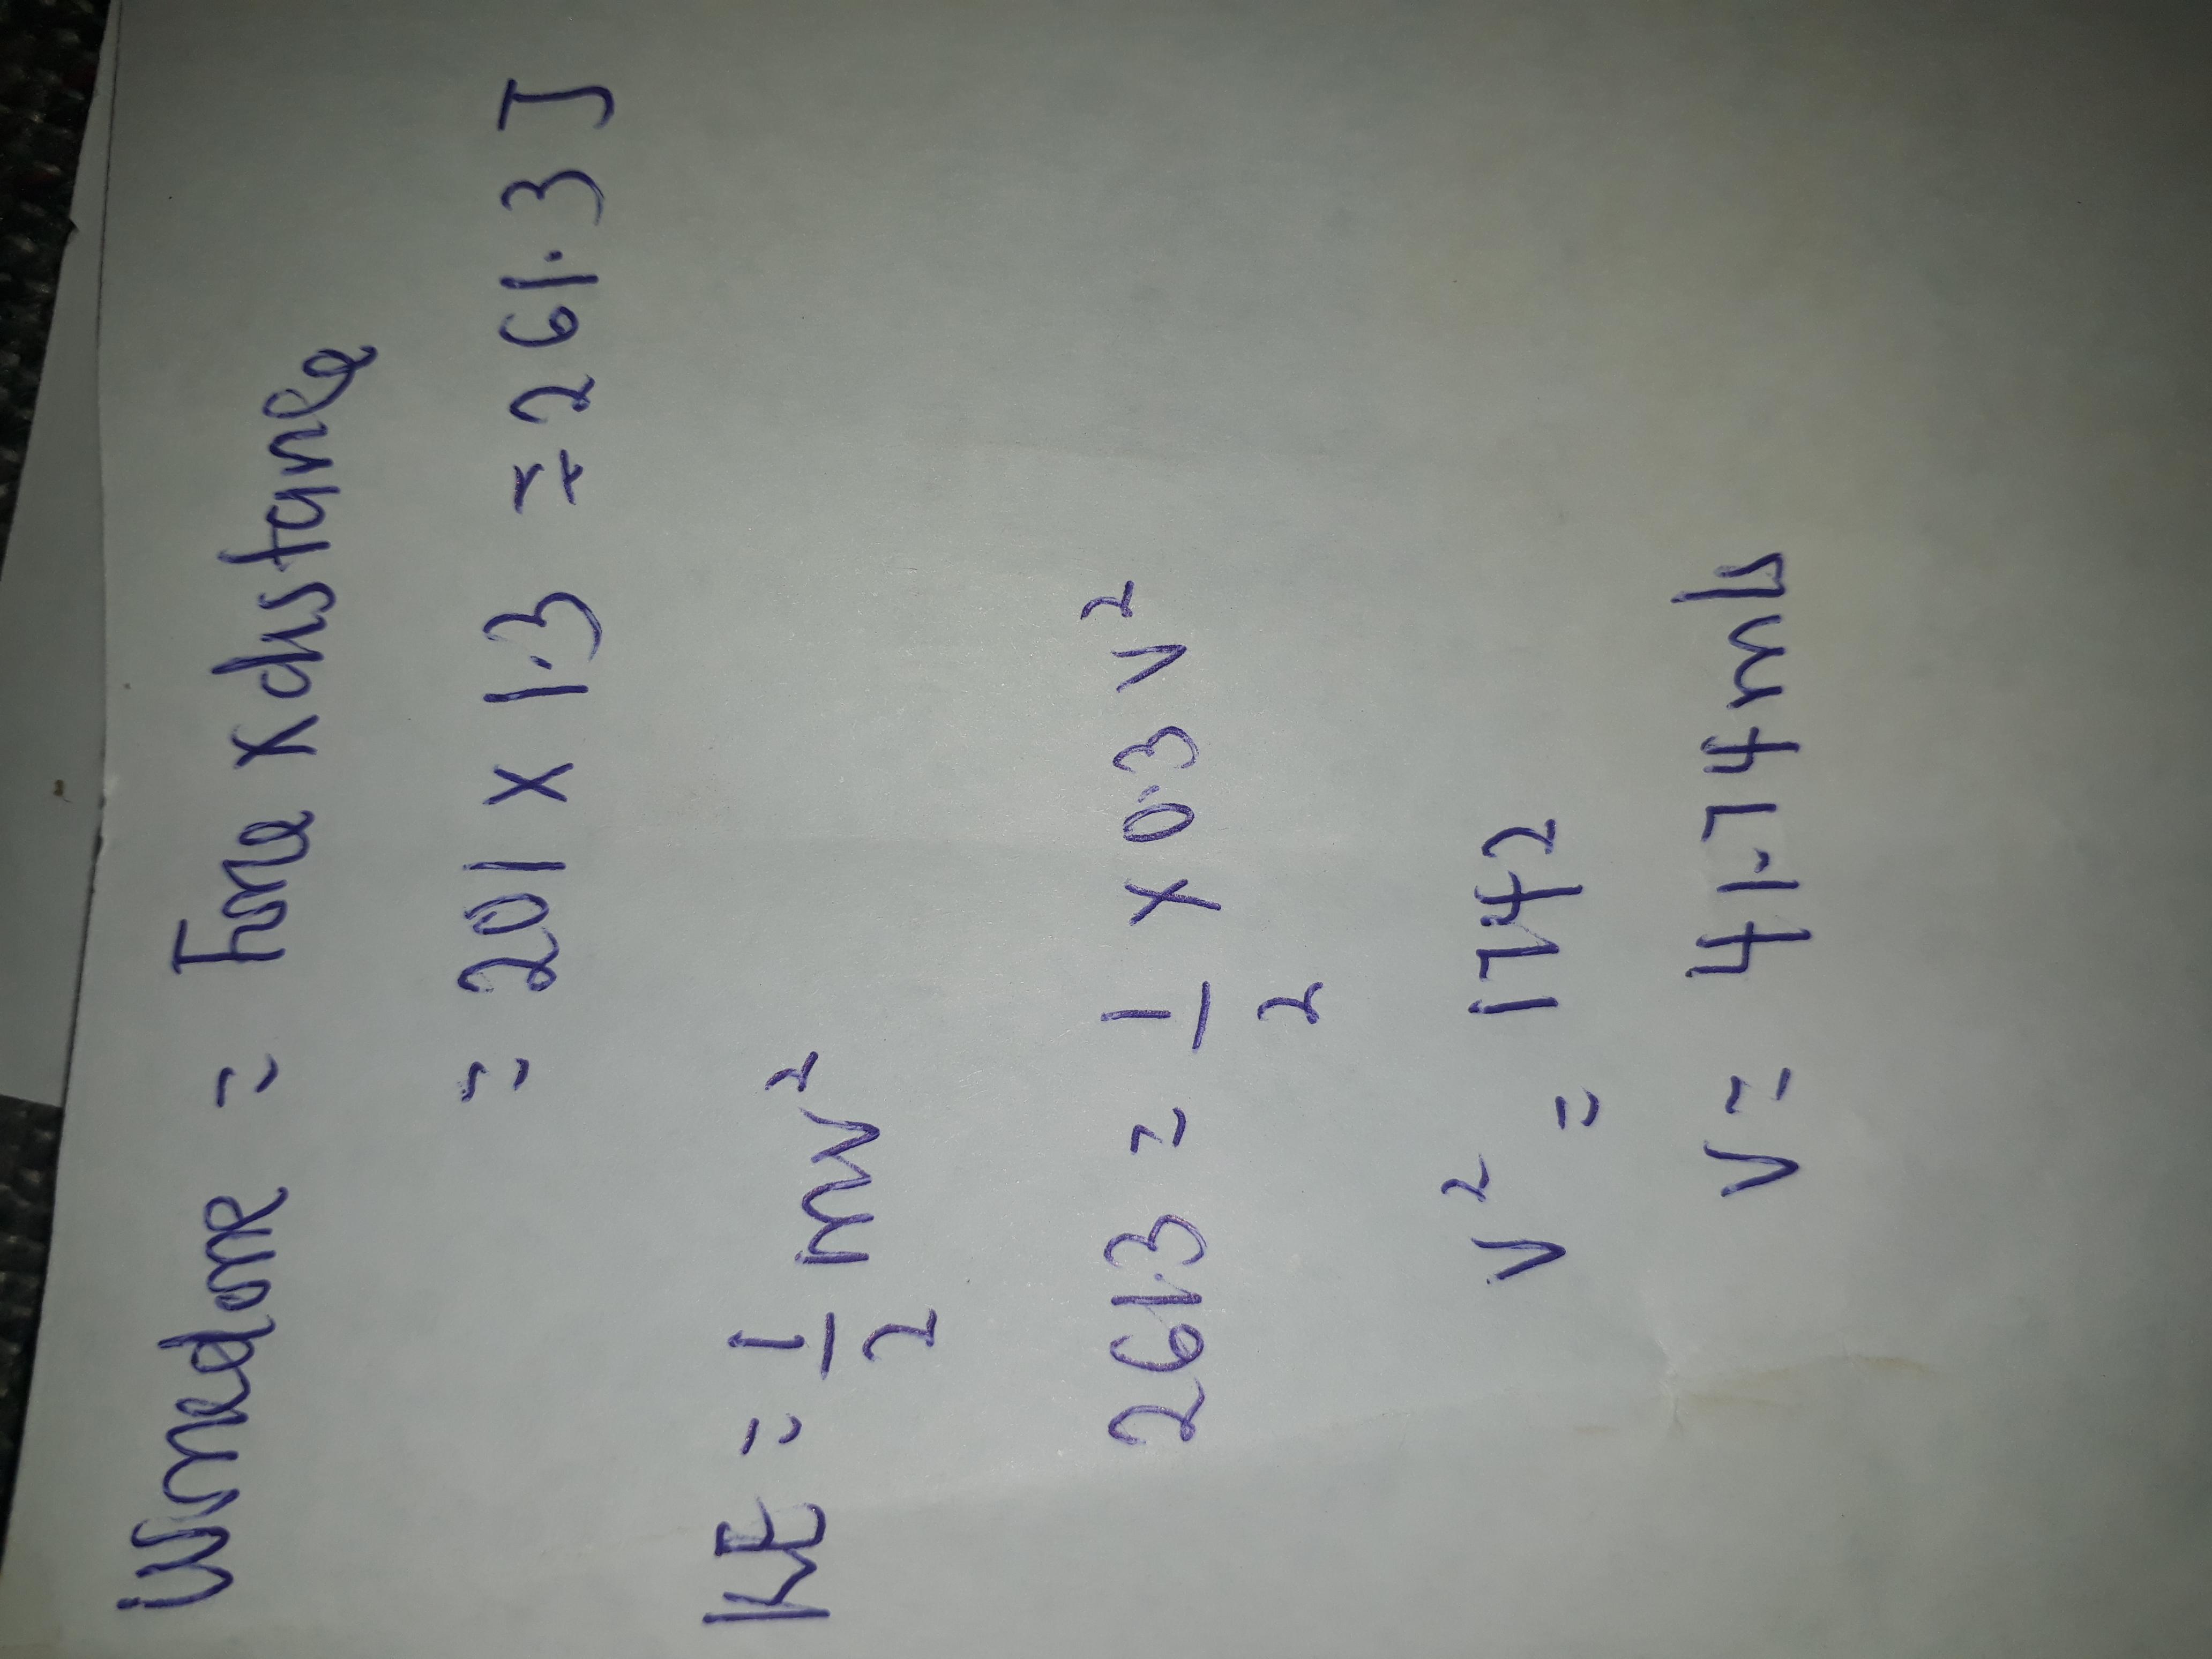 Workdone = Force x distance
= 201 x 1.3 = 261.3 J
KE = 1/2 mv²
261.3 = 1/2 x 0.3 v²
v² = 1742
v = 41.74 m/s